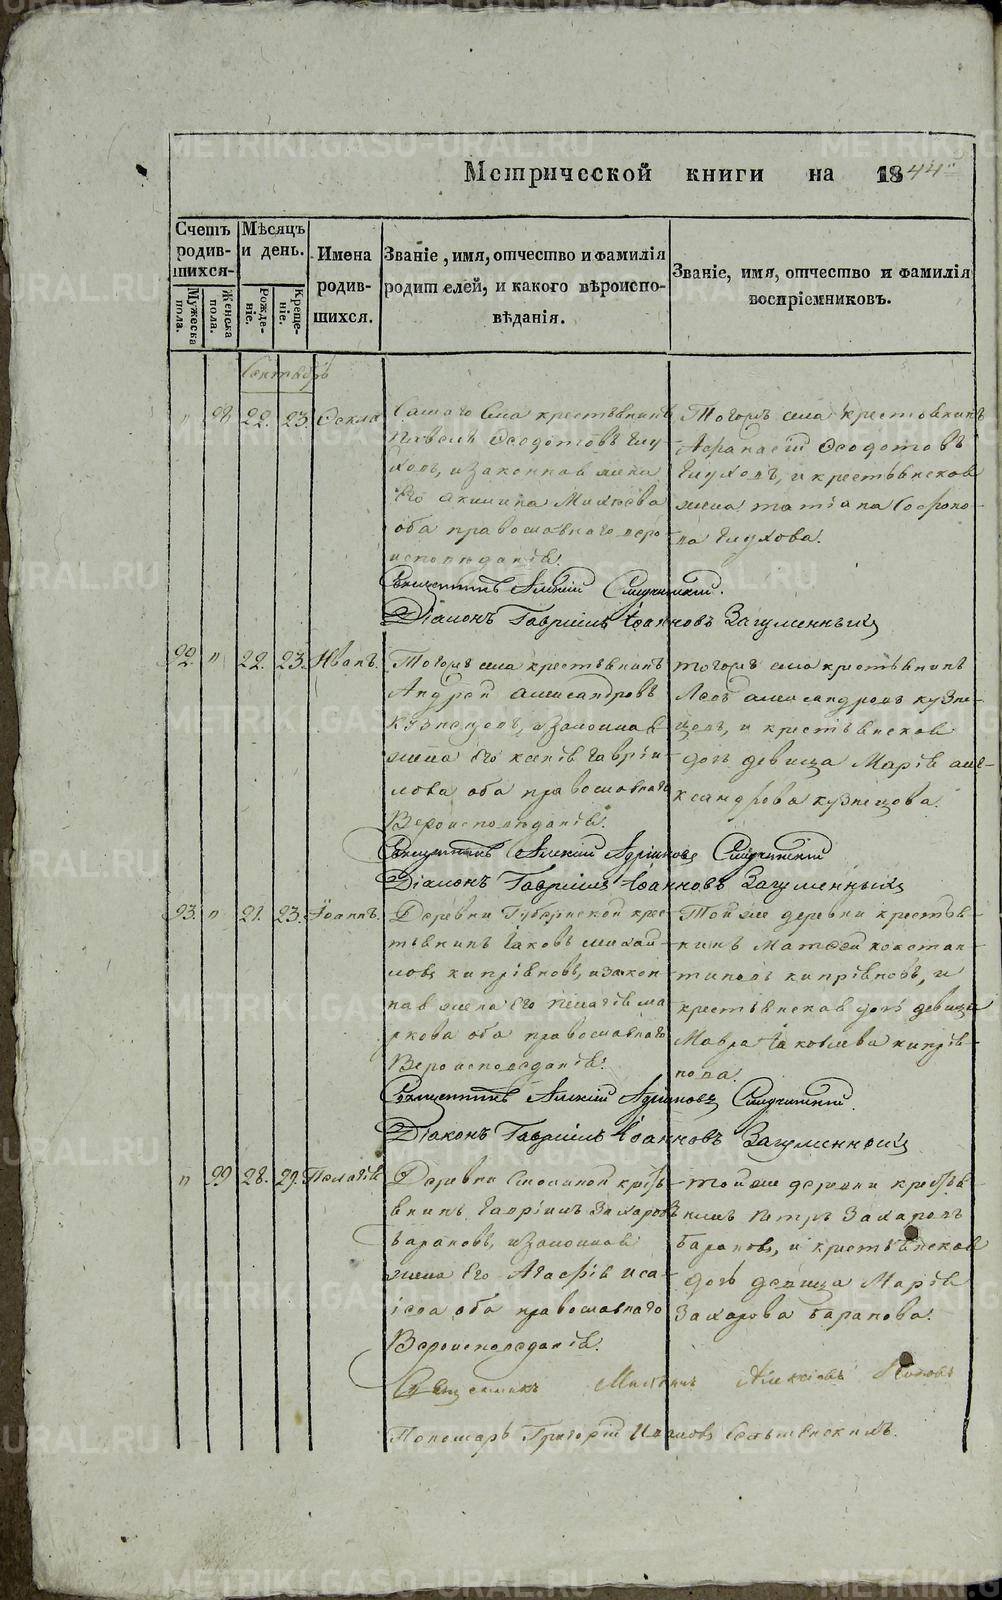 Метрической книги на 1844й
Счетъ родив-шихся.
Мужеска пола.
Женска пола.
Мѣсяцъ и день.
Рожде-ніе.
Креще-ніе.
Имена родив-шихся.
Званіе, имя, отчество и фамилія
родителей, и какого вѣроиспо-
вѣданія.
Званіе, имя, отчество и фамилія
воспріемниковъ.
Сентябрь
" 98 22. 23. Ѳекла
Самаго села крестьянинъ
Павелъ Ѳеодотовъ Глу
ховъ, и законная жена
Его Акилина
оба православнаго веро
исповѣданія.
Тогожъ села крестьянинъ
Афанасій Ѳеодотовъ
Глуховъ, и крестьянская
жена татіана Софоно-
ва Глухова.
Священникъ Алексій
Діаконъ Гавріилъ Іоанновъ Загуменныхъ
92. " 22. 23. Иванъ.
Тогожъ села крестьянинъ
Андрей Александровъ
Кузнецовъ, и законная
жена Его ксенія Гаврiи-
лова оба православнаго
Вероисповѣданія.
тогожъ села крестьянинъ
Левъ александровъ кузне-
цовъ, и крестьянская
дочь девица Марія але-
ксандрова кузнецова.
Священникъ Алексій Адріановъ
Діаконъ Гавріилъ Іоанновъ Загуменныхъ
93. " 21. 23. Іоаннъ.
Деревни Губернской крес-
тьянинъ Іаковъ михай-
ловъ кипріяновъ, и закон
ная жена Его пелагія ма
ркова оба православнаго
Вероисповеданія.
Той же деревни крестья-
нинъ Матѳей констан-
тиновъ кипріяновъ, и
крестьянская дочь девица
Мавра Іаковлева кипрія-
нова.
Священникъ Алексій Адріановъ
Діаконъ Гавріилъ Іоанновъ Загуменныхъ
" 99 28. 29. Пелагія
Деревни Смолиной кресть
янинъ Гавріилъ Захаровъ
барановъ, и законная
жена Его Агафія иса-
оба православнаго
Вероисповеданія.
той же деревни крестья-
нинъ петръ Захаровъ
барановъ, и крестьянская
дочь девица Марія
Захарова баранова.
Священникъ Алексіевъ Поповъ
Пономарь Григорій
METRIKI.GASO-URAL.RU